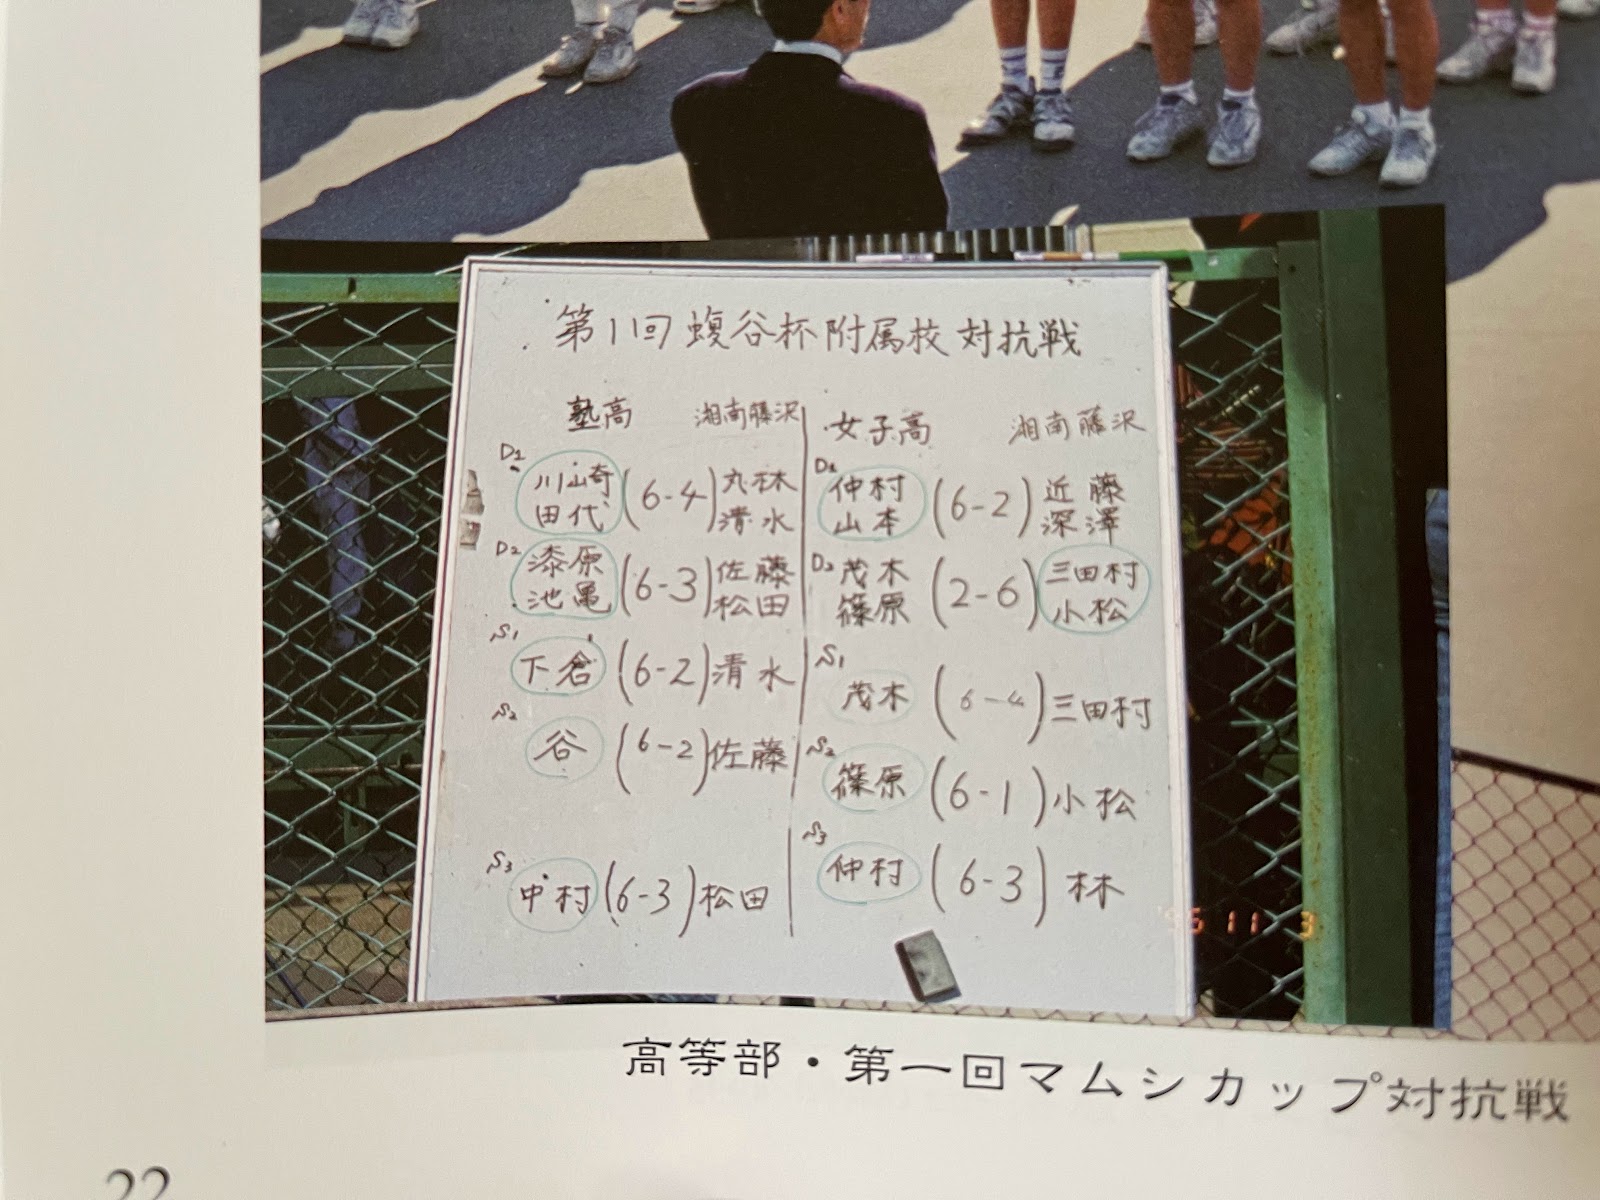 第1回 蝮谷杯附属校 対抗戦
塾高 湘南藤沢
D1 川崎 田代 (6-4) 丸林 清水
D2 漆原 池亀 (6-3) 佐藤 松田
S1 下倉 (6-2) 清水
S2 谷 (6-2) 佐藤
S3 中村 (6-3) 松田
女子高 湘南藤沢
D1 仲村 山本 (6-2) 近藤 深澤
D2 茂木 篠原 (2-6) 三田村 小松
S1 茂木 (6-4) 三田村
S2 篠原 (6-1) 小松
S3 仲村 (6-3) 林
11 3
高等部・第一回マムシカップ対抗戦
22